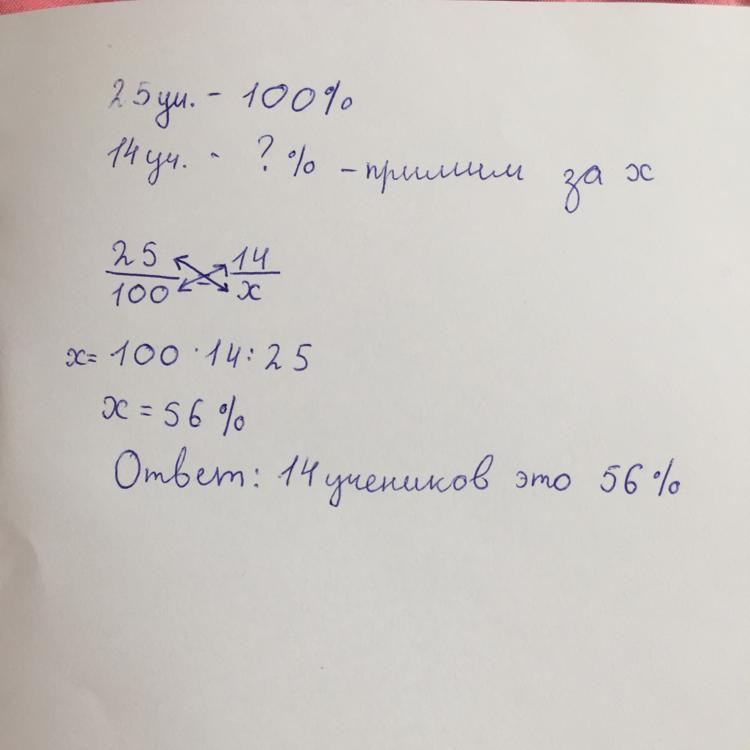 25 уч. - 100%
14 уч. - ? % - примим за x
25 14
100 - x
x = 100 · 14 : 25
x = 56 %
Ответ: 14 учеников это 56 %